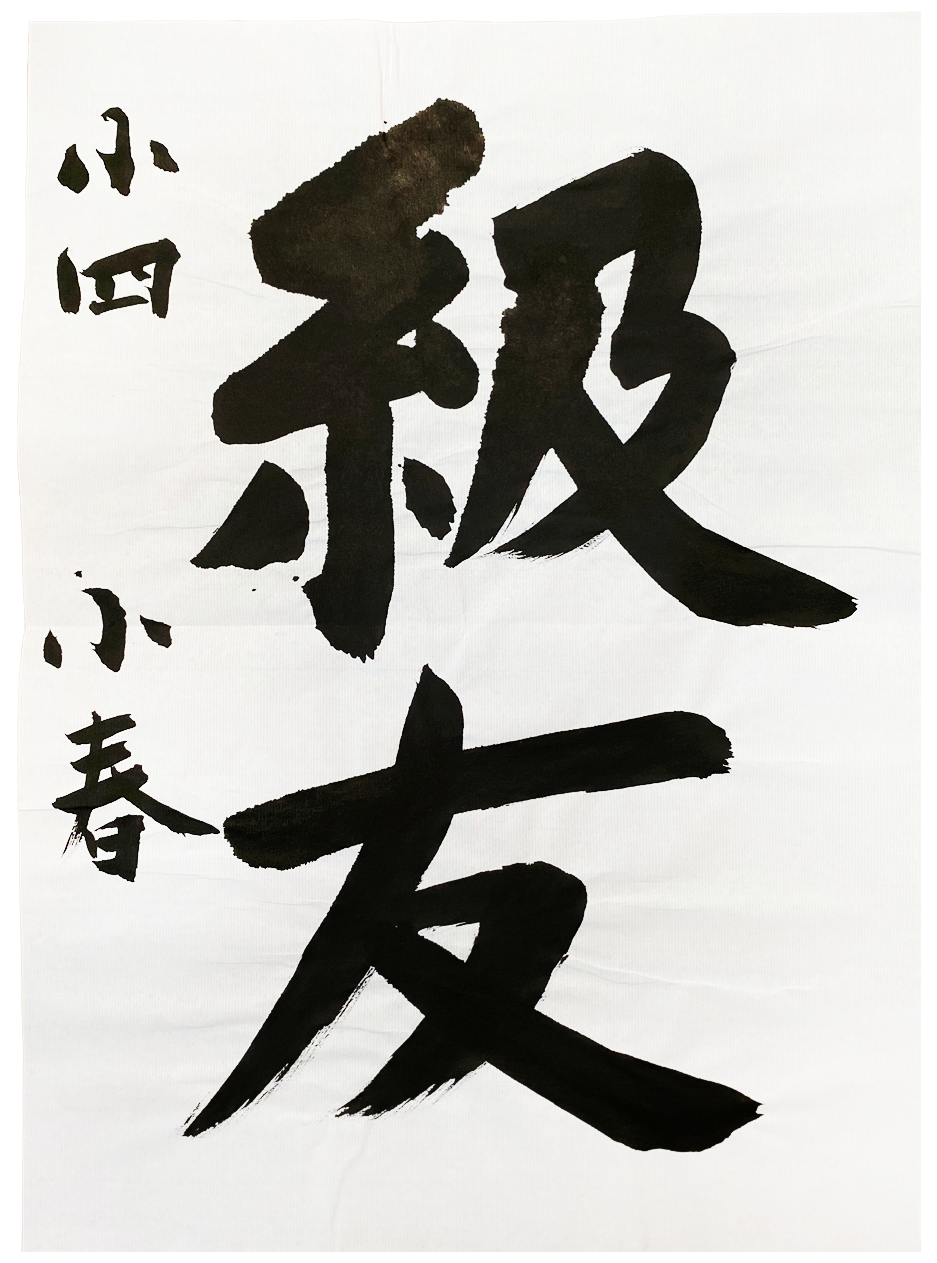 級友
小四 小春